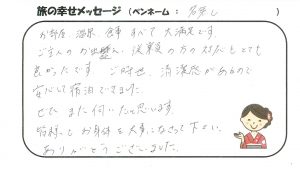 旅の幸せメッセージ (ペンネーム : 名無し )
お部屋、温泉、食事 すべて 大満足です。
ご主人のお出迎え、従業員の方の対応もとても
良かったです。ご時世、清潔感があるので
安心して宿泊できました。
ぜひ また伺いたいと思います。
皆様も お身体を大事になさって下さい。
ありがとうございました。